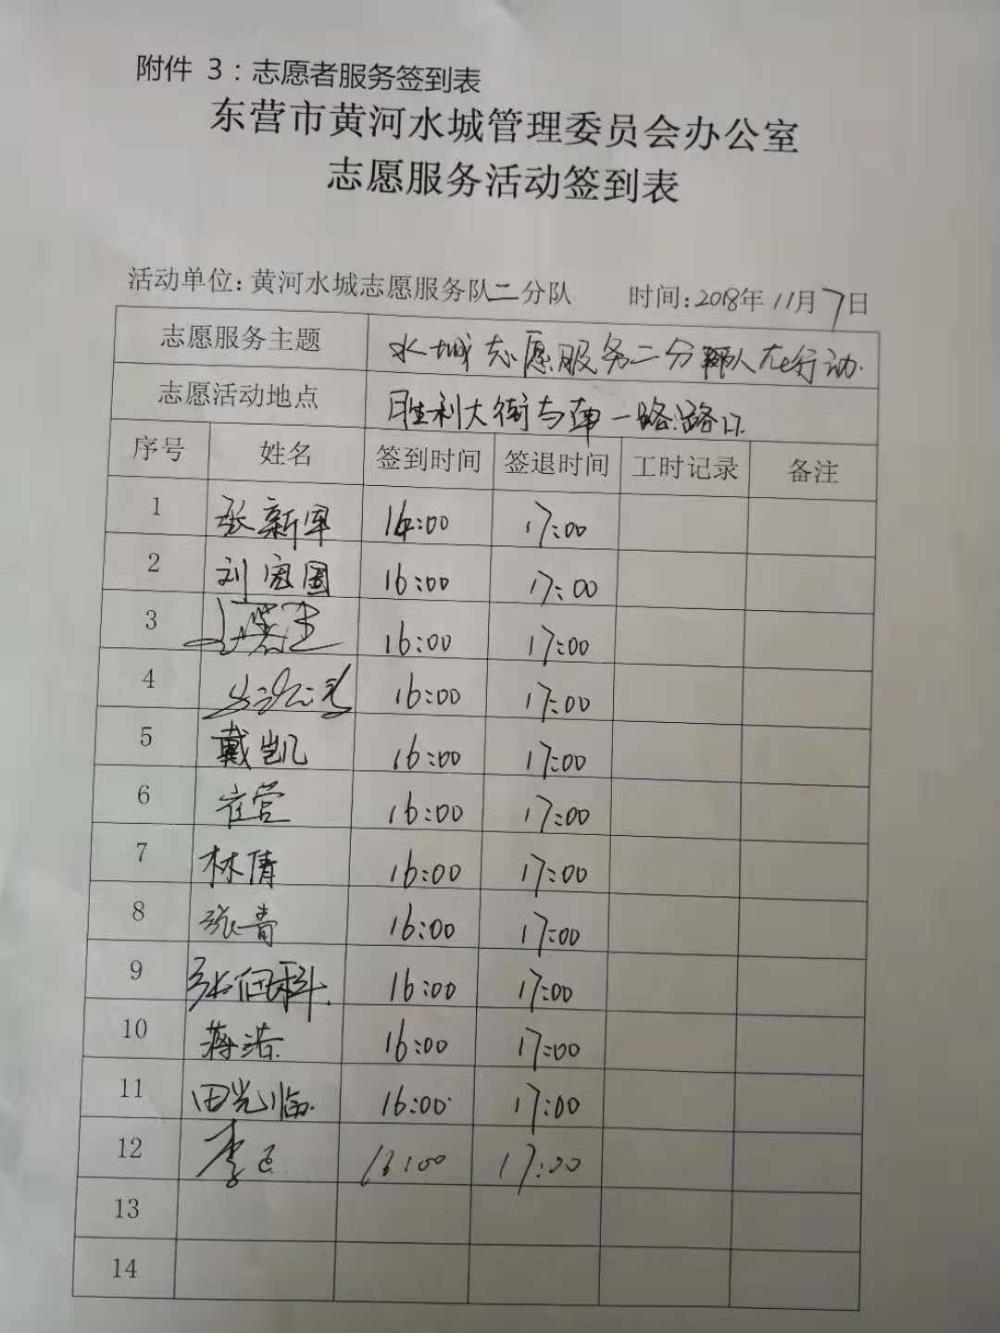 附件 3：志愿者服务签到表
东营市黄河水城管理委员会办公室
志愿服务活动签到表
活动单位: 黄河水城志愿服务队二分队 时间: 2018年11月7日
志愿服务主题 水城志愿服务二分队在行动.
志愿活动地点 胜利大街与南一路路口
序号 姓名 签到时间 签退时间 工时记录 备注
1 张新军 16:00 17:00
2 刘宏国 16:00 17:00
3 16:00 17:00
4 16:00 17:00
5 戴凯 16:00 17:00
6 崔营 16:00 17:00
7 林倩 16:00 17:00
8 张青 16:00 17:00
9 16:00 17:00
10 蒋浩 16:00 17:00
11 田光临 16:00 17:00
12 李 16:00 17:00
13
14